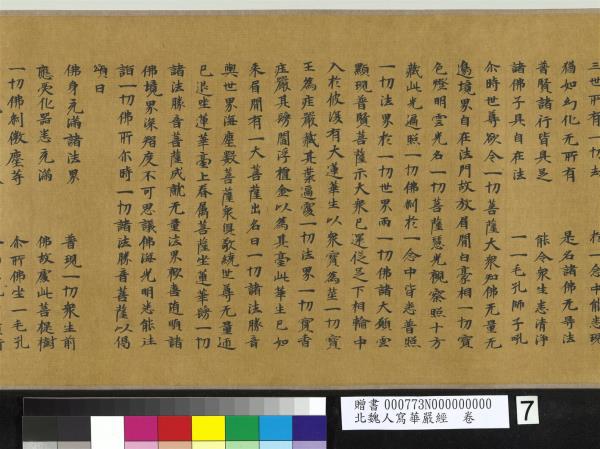 三世所有一切去 於一念中能悉現
猶如幻化无所有 是名諸佛无㝵法
普賢諸行皆具足 能令衆生悉清淨
諸佛子具自在法 一一毛孔師子吼
尒時世尊欲令一切菩薩大衆知佛无量无
邊境界自在法門故放眉間白豪相一切寶
色燈明雲光名一切菩薩慧光觀察照十方
藏此光遍照一切佛刹於一念中皆悉普照
一切法界於一切世界雨一切佛諸大願雲
顯現普賢菩薩示大衆已還從足下相輪中
入於彼後有大蓮華生以衆寶爲莖一切寶
王為莊嚴藏其葉遍覆一切法界一切寶香
莊嚴其鬚閻浮檀金以為其臺此華生已如
來眉間有一大菩薩出名曰一切諸法勝音
與世界海塵數菩薩衆俱敬繞世尊无量迊
已退坐蓮華臺上眷屬菩薩坐蓮華鬚一切
諸法勝音菩薩成就无量法界歡喜隨順諸
佛境界深度不可思議佛海光明悉能往
詣一切佛所尒時一切諸法勝音菩薩以偈
頌曰
佛身充滿諸法界 普現一切衆生前
應受化器悉充滿 佛故處此菩提樹
一切佛刹微塵等 尒所佛坐一毛孔
贈書 000773N000000000
北魏人寫華嚴經 卷
7